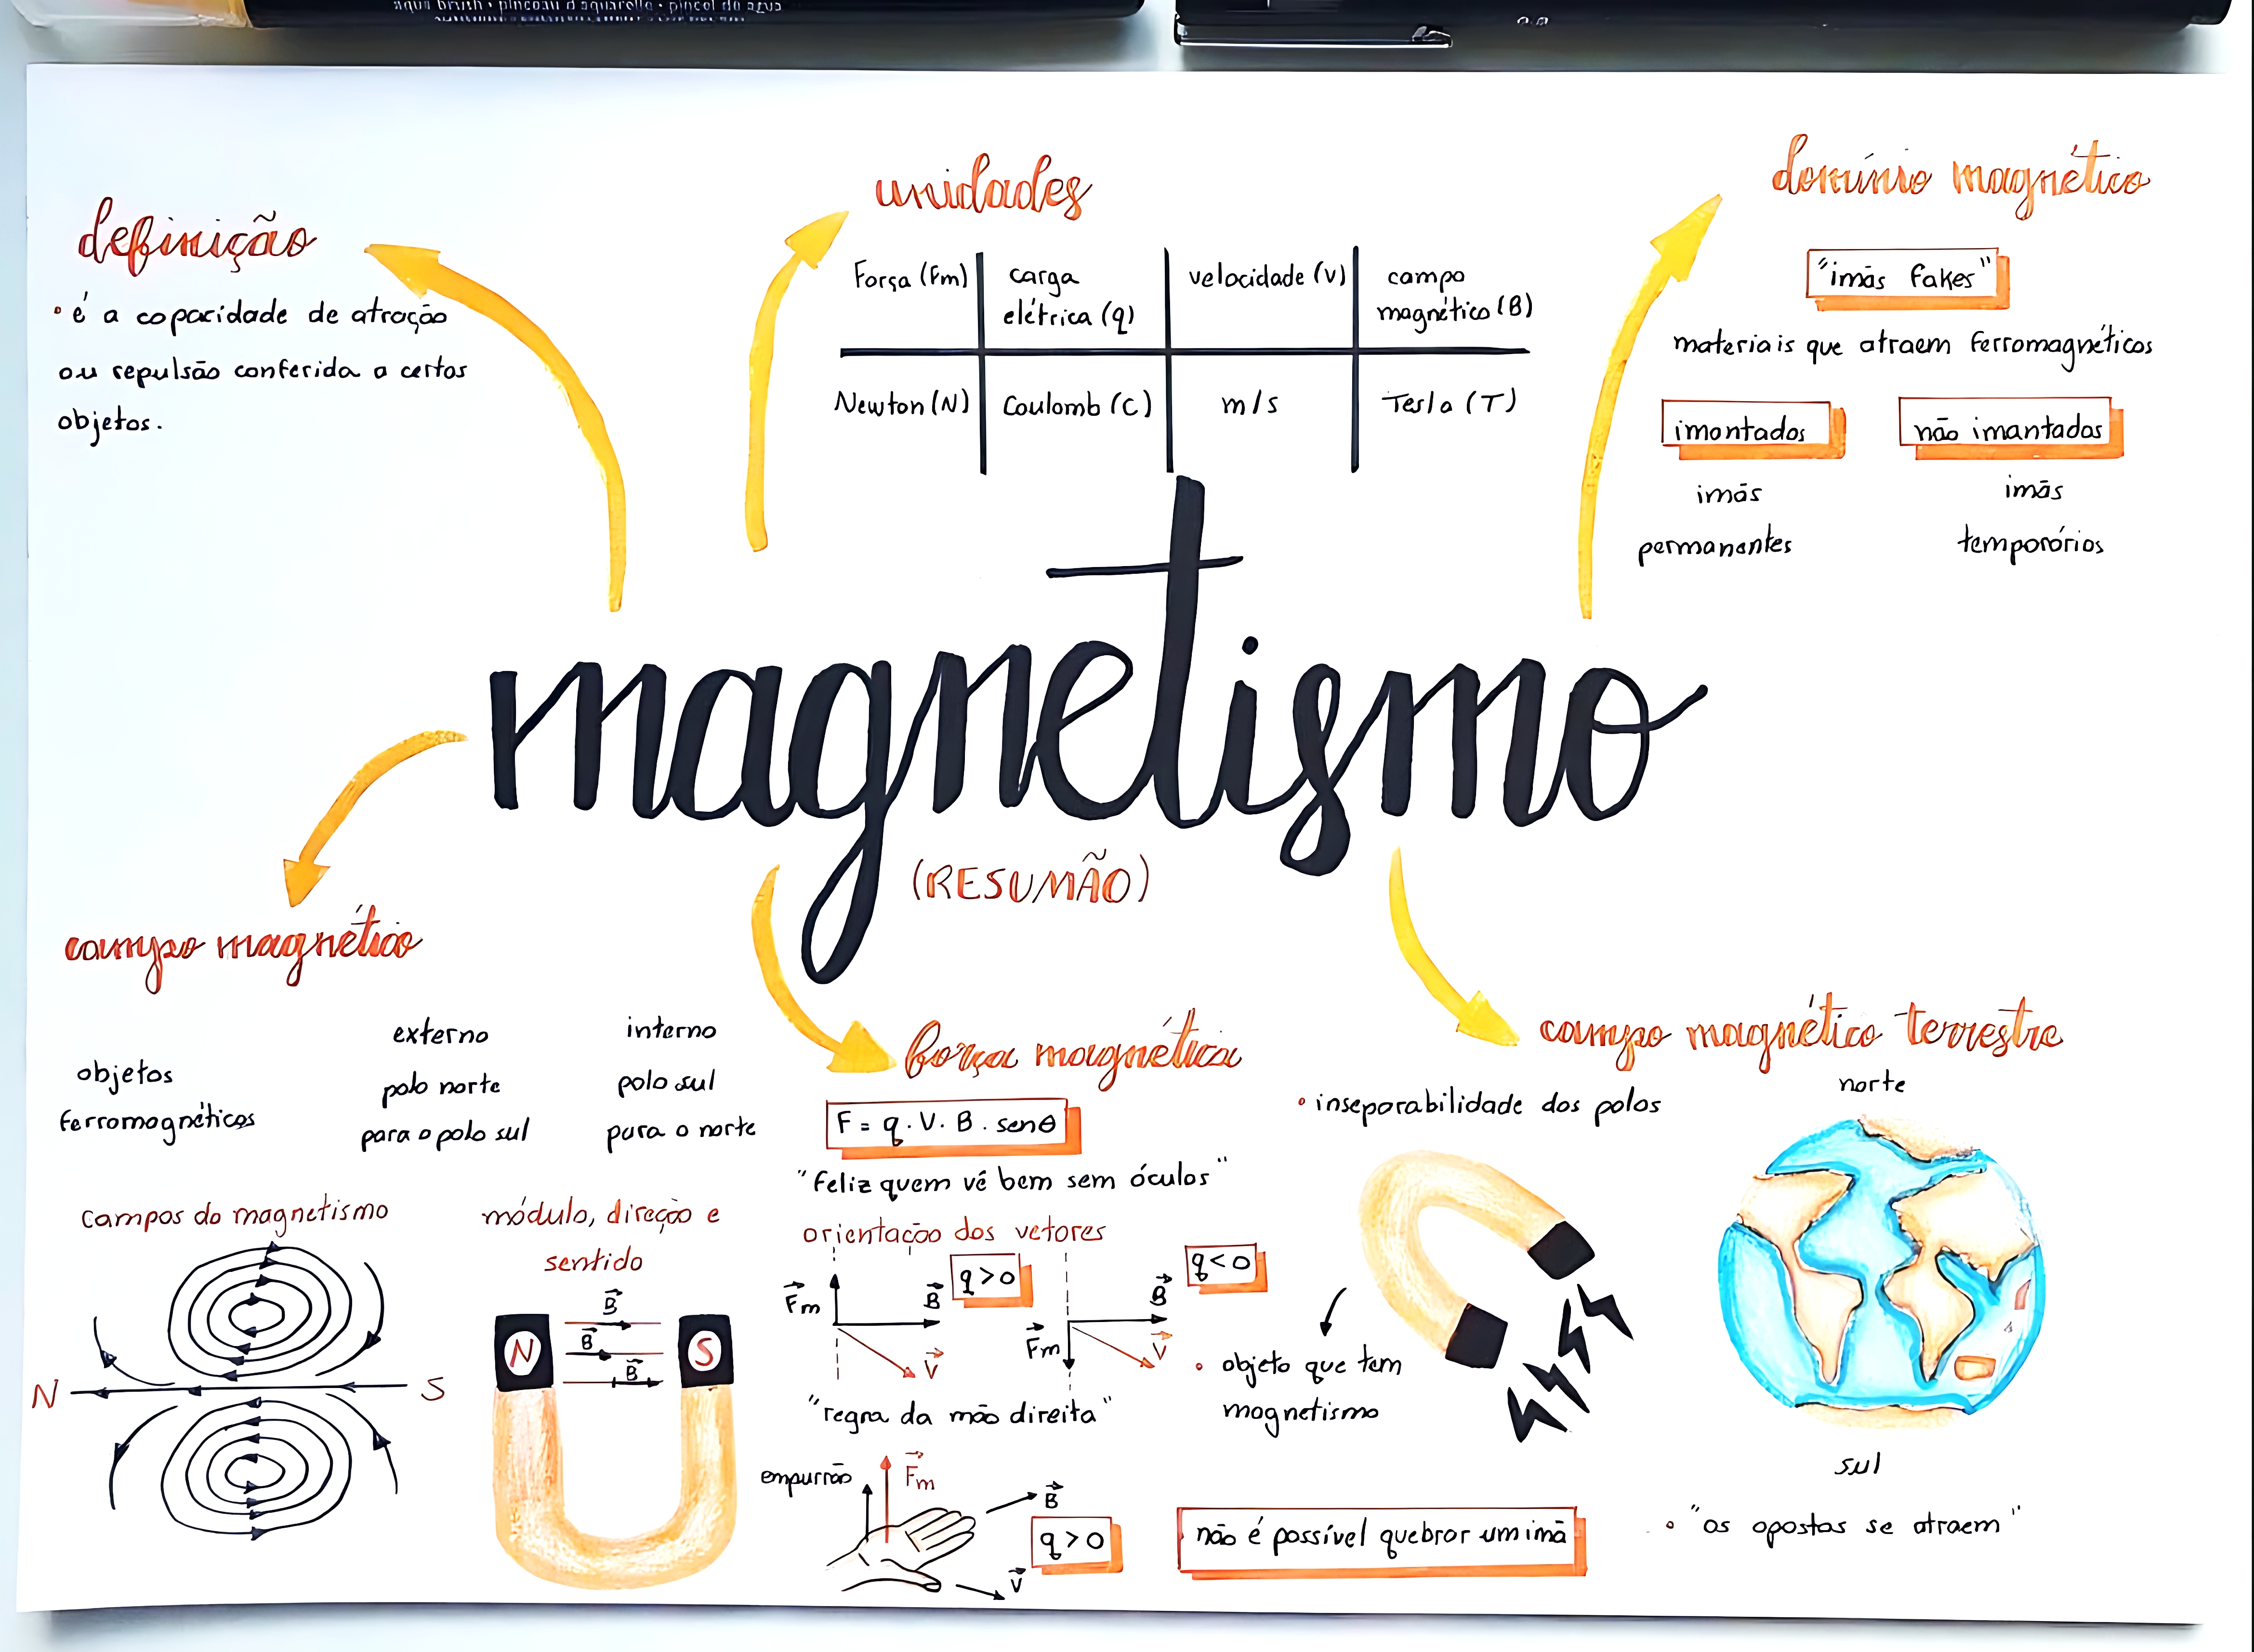 aqua brush • pinceau d'aquarelle • pincel de agua
magnetismo
(RESUMÃO)
definição
• é a capacidade de atração
ou repulsão conferida a certos
objetos.
unidades
Força (Fm)
carga
elétrica (q)
velocidade (v)
campo
magnético (B)
Newton (N)
Coulomb (C)
m/s
Tesla (T)
domínio magnético
"imãs fakes"
materiais que atraem ferromagnéticos
imantados
não imantados
imãs
permanentes
imãs
temporários
campo magnético
objetos
ferromagnéticos
externo
polo norte
para o polo sul
interno
polo sul
para o norte
campos do magnetismo
N
S
módulo, direção e
sentido
N
B
B
B
S
força magnética
F = q . V . B . senθ
"feliz quem vê bem sem óculos"
orientação dos vetores
Fm
B
q > 0
V
Fm
B
q < 0
V
"regra da mão direita"
empurrão
Fm
B
q > 0
V
campo magnético terrestre
• inseparabilidade dos polos
• objeto que tem
magnetismo
não é possível quebrar um imã
norte
sul
• "os opostos se atraem"